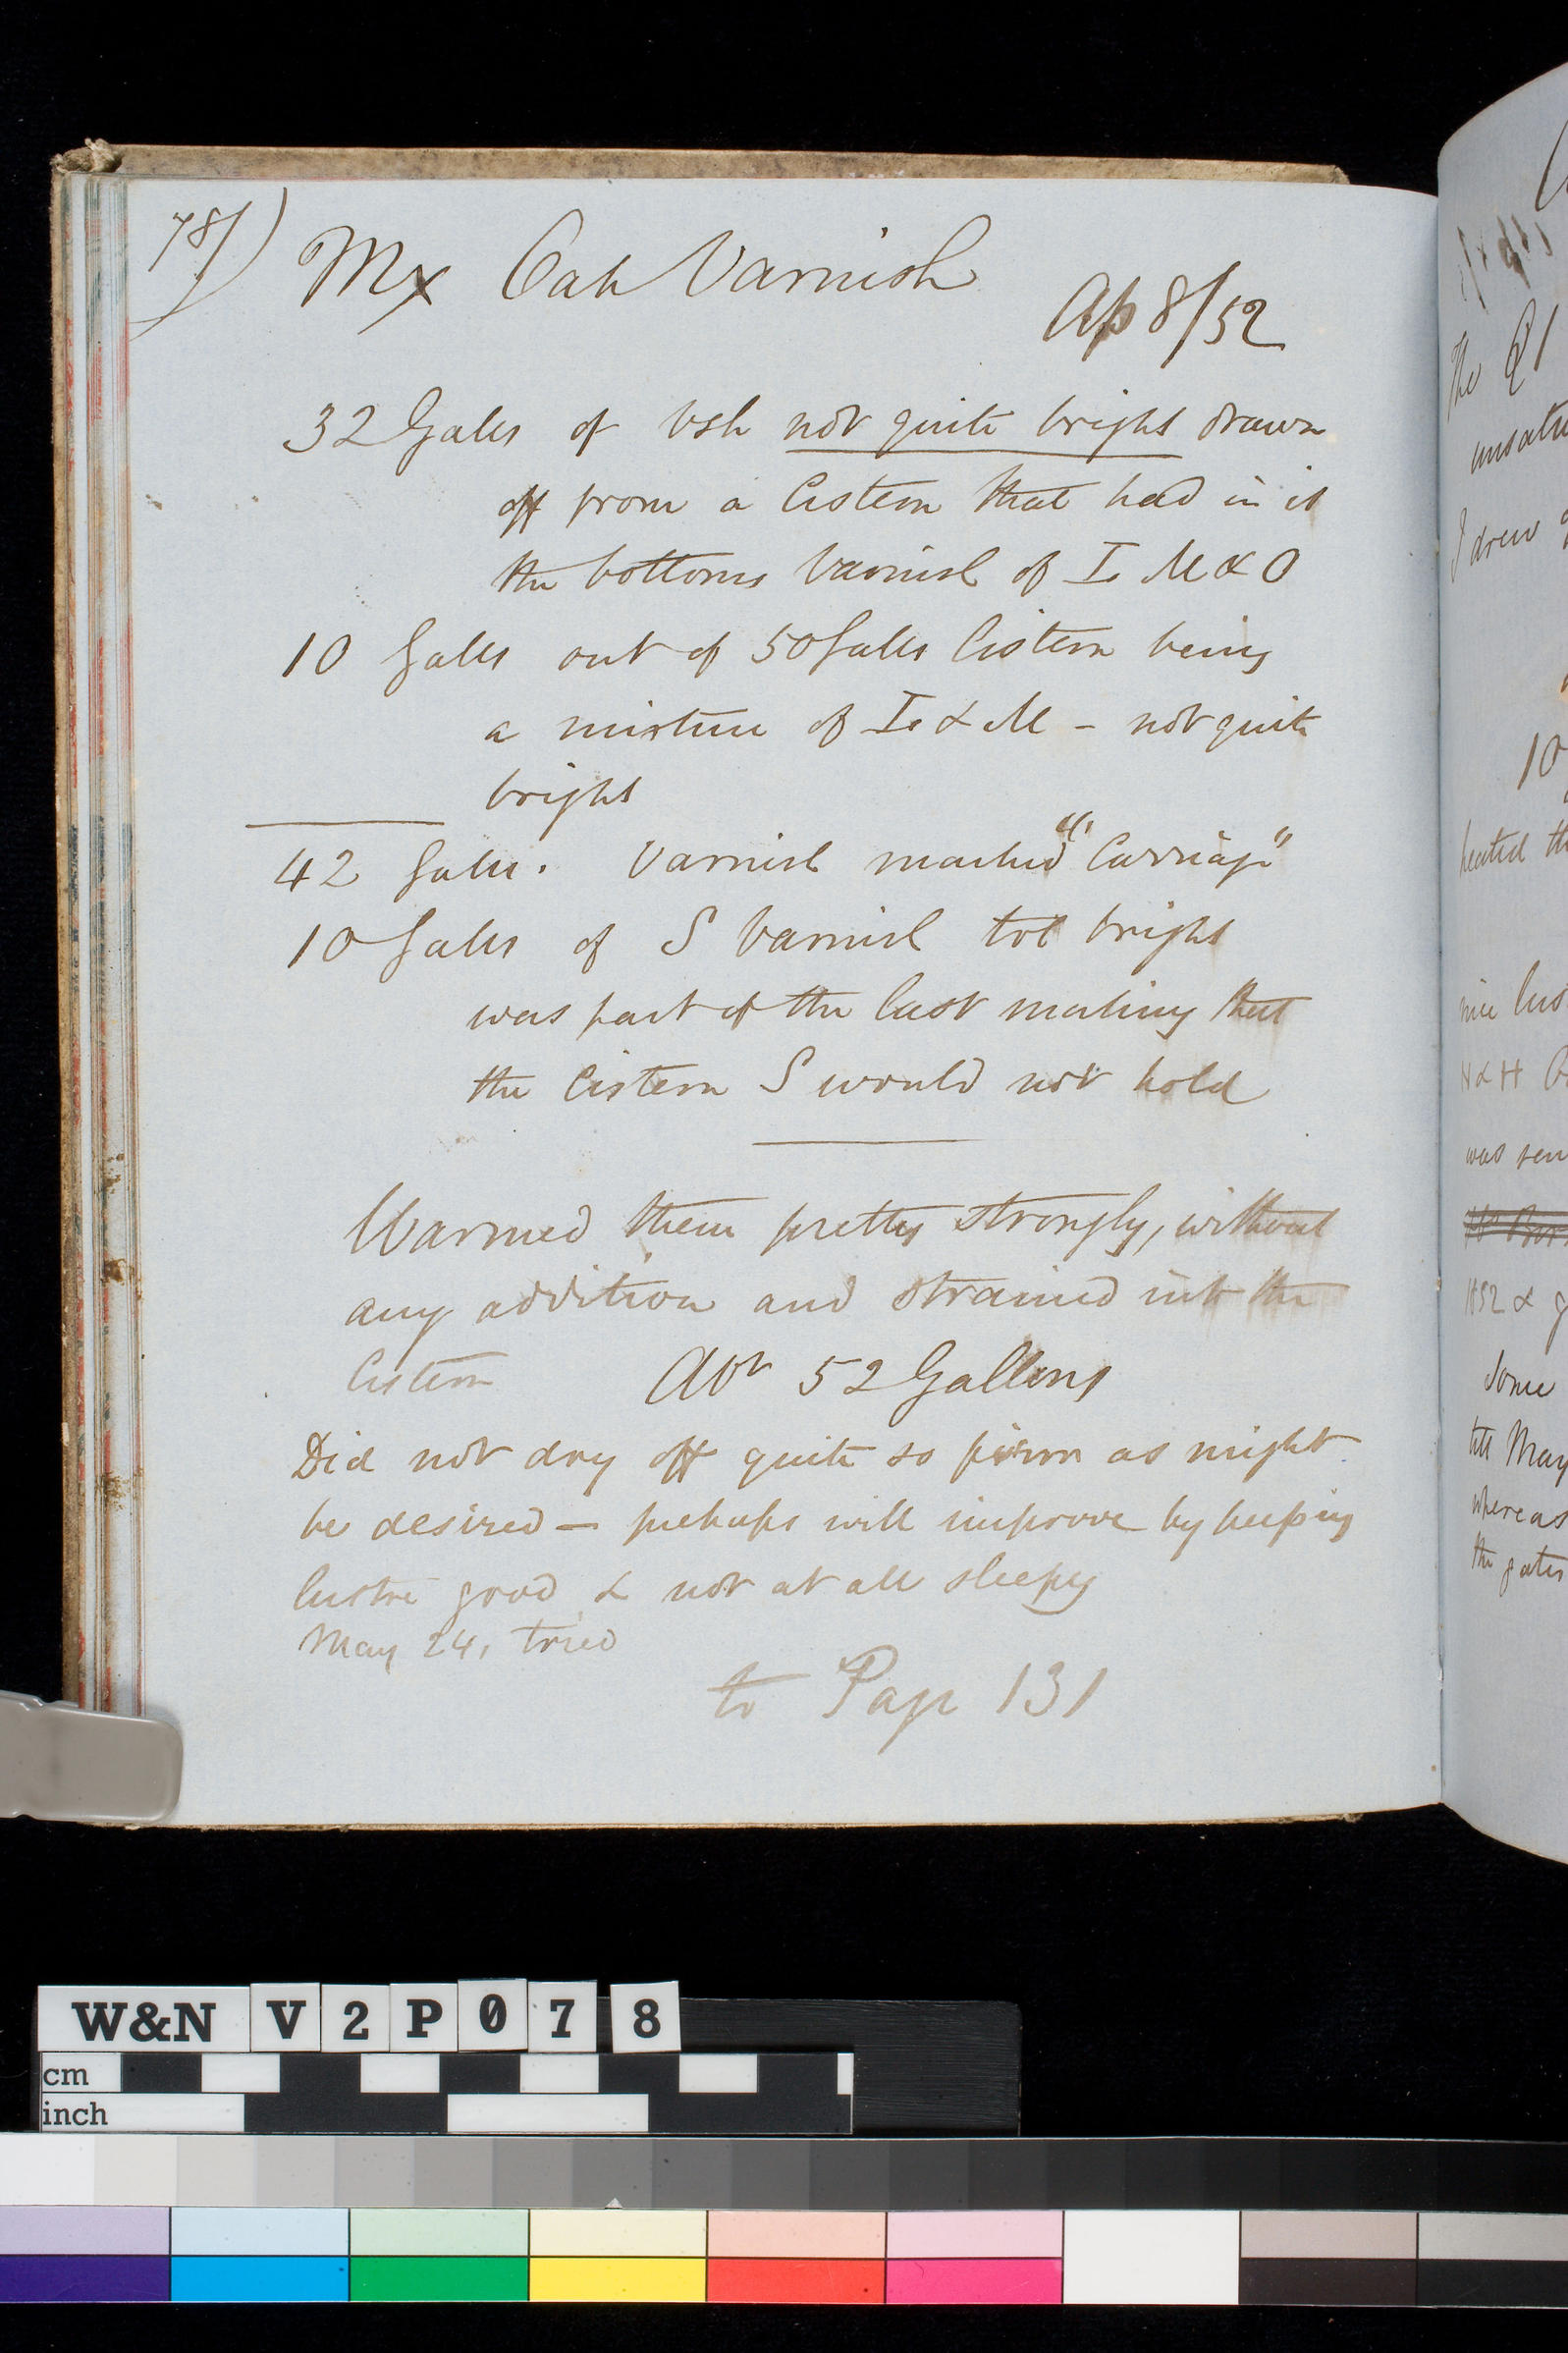 78/)
Mx Oak Varnish
Ap 8/52
32 Galls of Vsh not quite bright drawn
off from a Cistern that had in it
the bottoms Varnish of I. M & O
10 Galls out of 50 Galls Cistern being
a mixture of I. & M - not quite
bright
42 Galls. Varnish marked "Carriage"
10 Galls of S Varnish tol bright
was part of the last making that
the Cistern S would not hold
Warmed them pretty strongly, without
any addition and strained into the
Cistern Abt 52 Gallons
Did not dry off quite so firm as might
be desired — perhaps will improve by keeping
lustre good & not at all sleepy
May 24, tried
to Page 131
The
I drew
10
heated th
nice lus
H & H
was sen
1852 &
Some
till May
whereas
the
W&N V 2 P 0 7 8
cm
inch